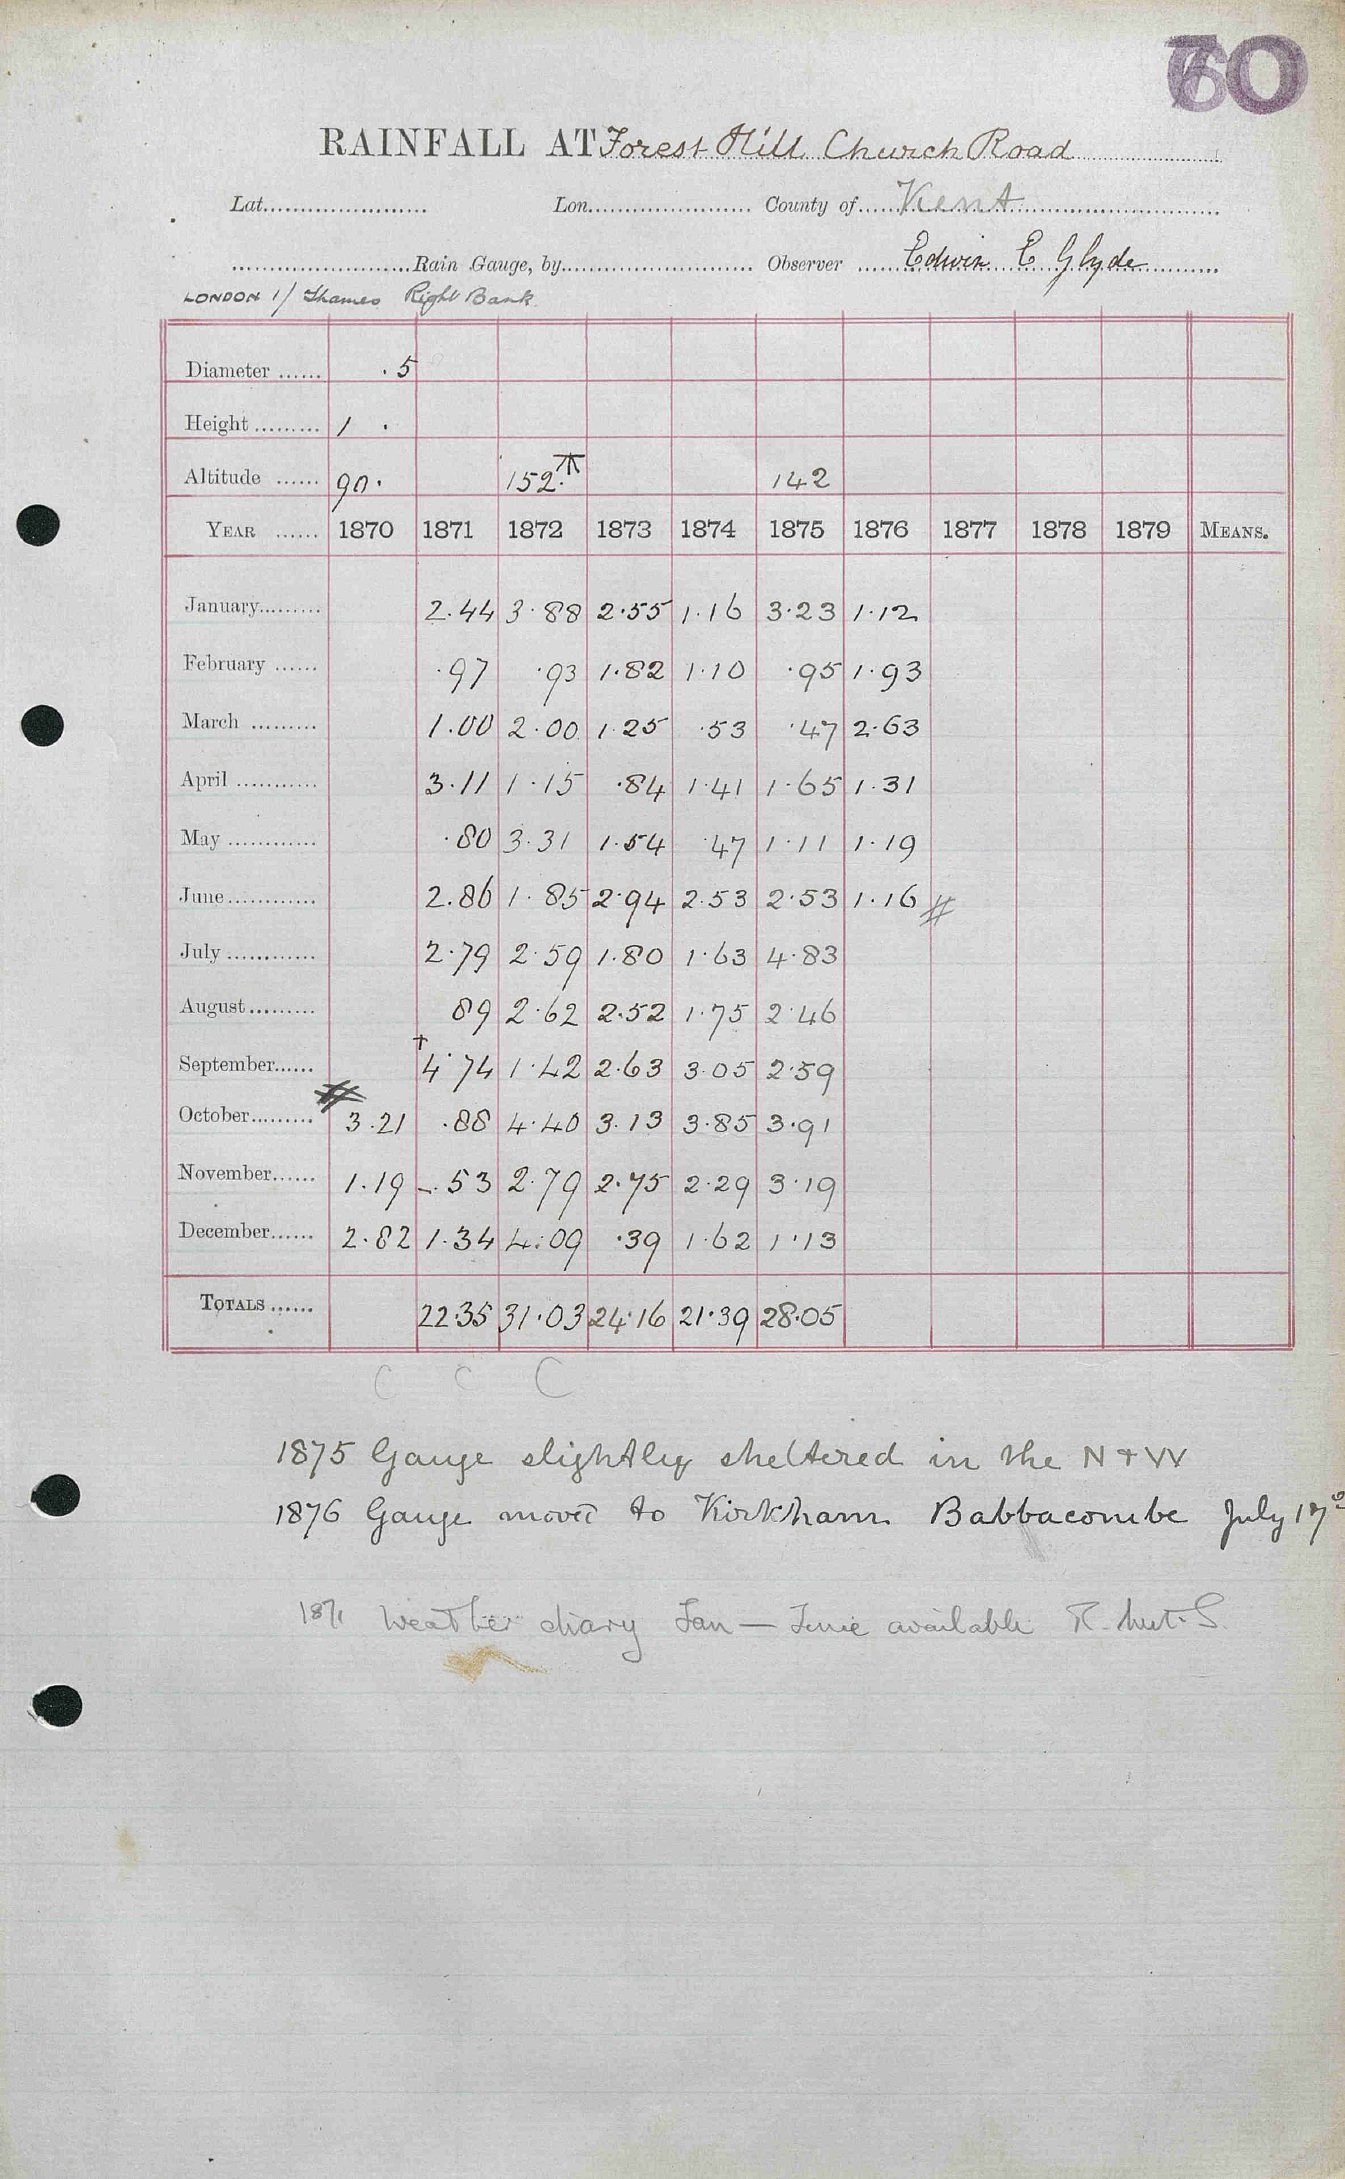 60
RAINFALL AT Forest Hill Church Road
Lat. Lon. County of Kent
Rain Gauge, by Observer Edwin E Glyde
LONDON 1/ Thames Right Bank
Diameter ...... .5
Height ......... 1 .
Altitude ...... 90. 152. 142
YEAR ...... 1870 1871 1872 1873 1874 1875 1876 1877 1878 1879 MEANS.
January......... 2.44 3.88 2.55 1.16 3.23 1.12
February ...... .97 .93 1.82 1.10 .95 1.93
March ......... 1.00 2.00 1.25 .53 .47 2.63
April ........... 3.11 1.15 .84 1.41 1.65 1.31
May ............ .80 3.31 1.54 .47 1.11 1.19
June............ 2.86 1.85 2.94 2.53 2.53 1.16 #
July ............ 2.79 2.59 1.80 1.63 4.83
August......... 89 2.62 2.52 1.75 2.46
September...... † 4.74 1.42 2.63 3.05 2.59
October......... # 3.21 .88 4.40 3.13 3.85 3.91
November...... 1.19 .53 2.79 2.75 2.29 3.19
December...... 2.82 1.34 4.09 .39 1.62 1.13
TOTALS ...... 22.35 31.03 24.16 21.39 28.05
C C C
1875 Gauge slightly sheltered in the N + W
1876 Gauge moved to Kirkham Babbacombe July 17
1871 Weather diary Jan — June available R. Met. S.